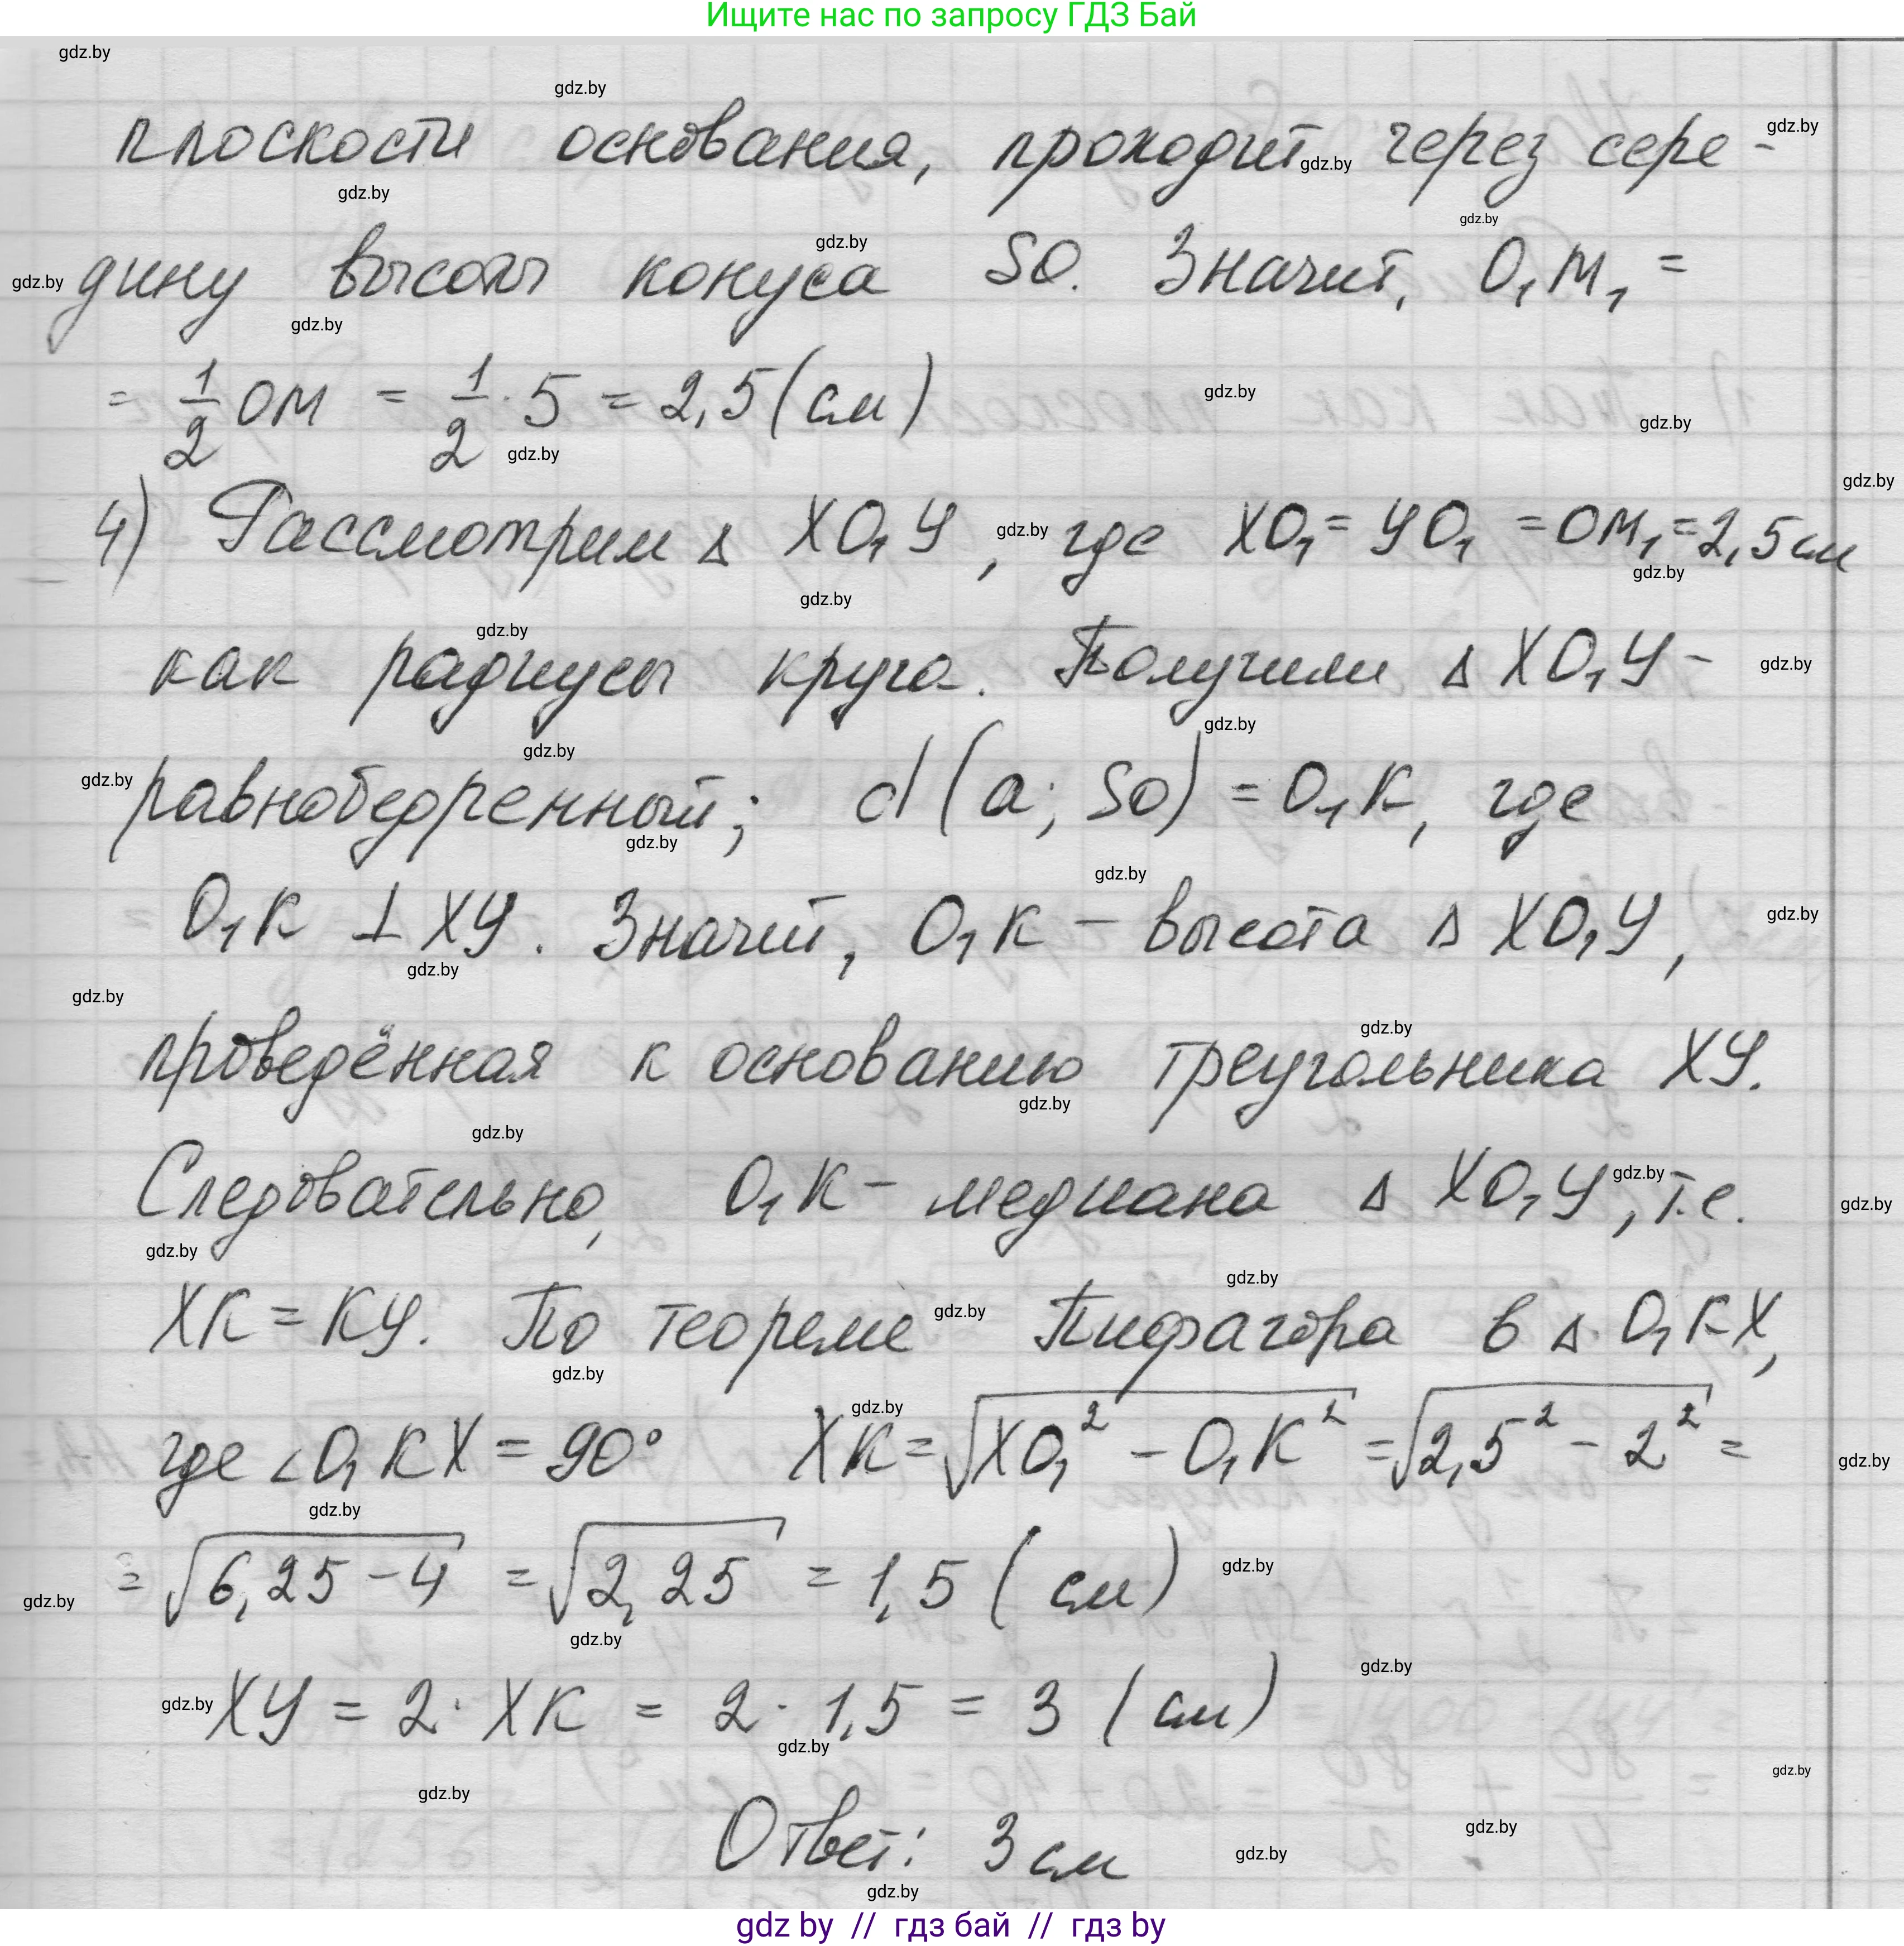 Ищите нас по запросу ГДЗ Бай
плоскости основания, проходит через сере-
дину высоты конуса SO. Значит, O₁M₁ =
= 1/2 OM = 1/2 · 5 = 2,5 (см)
4) Рассмотрим Δ XO₁Y, где XO₁ = YO₁ = OM₁ = 2,5 см
как радиусы круга. Получили Δ XO₁Y -
равнобедренный; d(a; SO) = O₁K, где
O₁K ⊥ XY. Значит, O₁K - высота Δ XO₁Y,
проведённая к основанию треугольника XY.
Следовательно, O₁K - медиана Δ XO₁Y, т.е.
XK = KY. По теореме Пифагора в Δ O₁KX,
где ∠O₁KX = 90° XK = √(XO₁² - O₁K²) = √(2,5² - 2²) =
= √(6,25 - 4) = √(2,25) = 1,5 (см)
XY = 2 · XK = 2 · 1,5 = 3 (см)
Ответ: 3 см
gdz by // гдз бай // гдз by